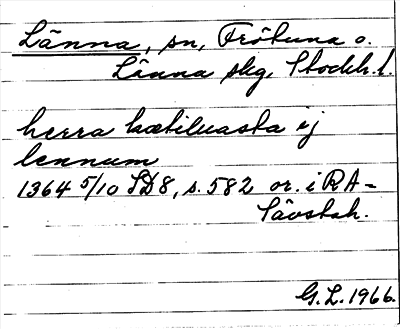 Länna, sn, Frötuna o.
Länna skg, Stockh. l.
herra kætiluasta ij
lennum
1364 5/10 SD8, s. 582 or. i RA-
Sävstah.
G.L. 1966.